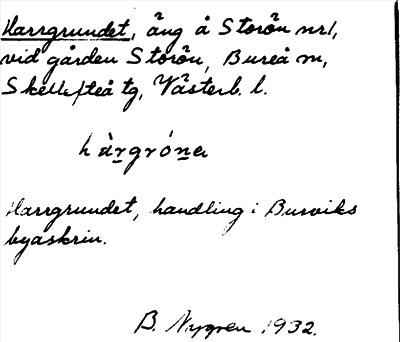 Harrgrundet, äng å Storön nr 1,
vid gården Storön, Bureå sn,
Skellefteå tg, Västerb. l.
hàrgróna
Harrgrundet, handling i Bureviks
byaskrin.
B. Nygren 1932.